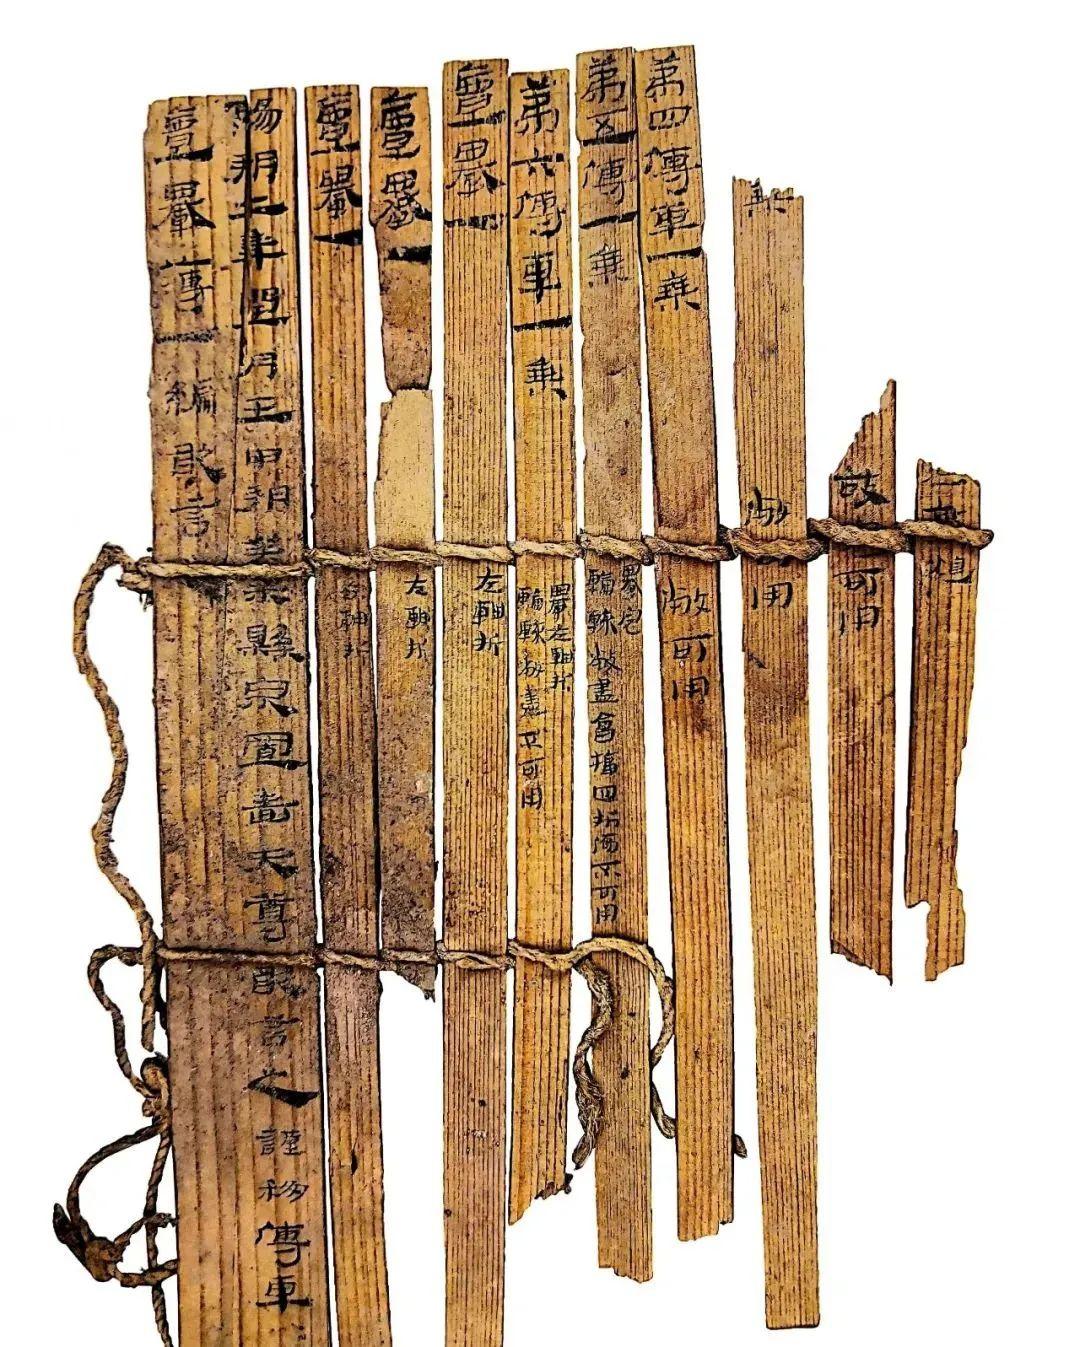 敝可用
乘
敝可用
第四傳車一乘
敝可用
第五傳一乘
轝完
輪轅敝盡會楅四折傷不可用
第六傳車一乘
轝左軸折
輪轅敝盡不可用
亶轝一
左軸折
亶轝一
左軸折
亶轝一
右軸折
陽朔二年閏月壬申朔癸未縣泉置嗇夫尊敢言之謹移傳車
亶轝薄一編敢言